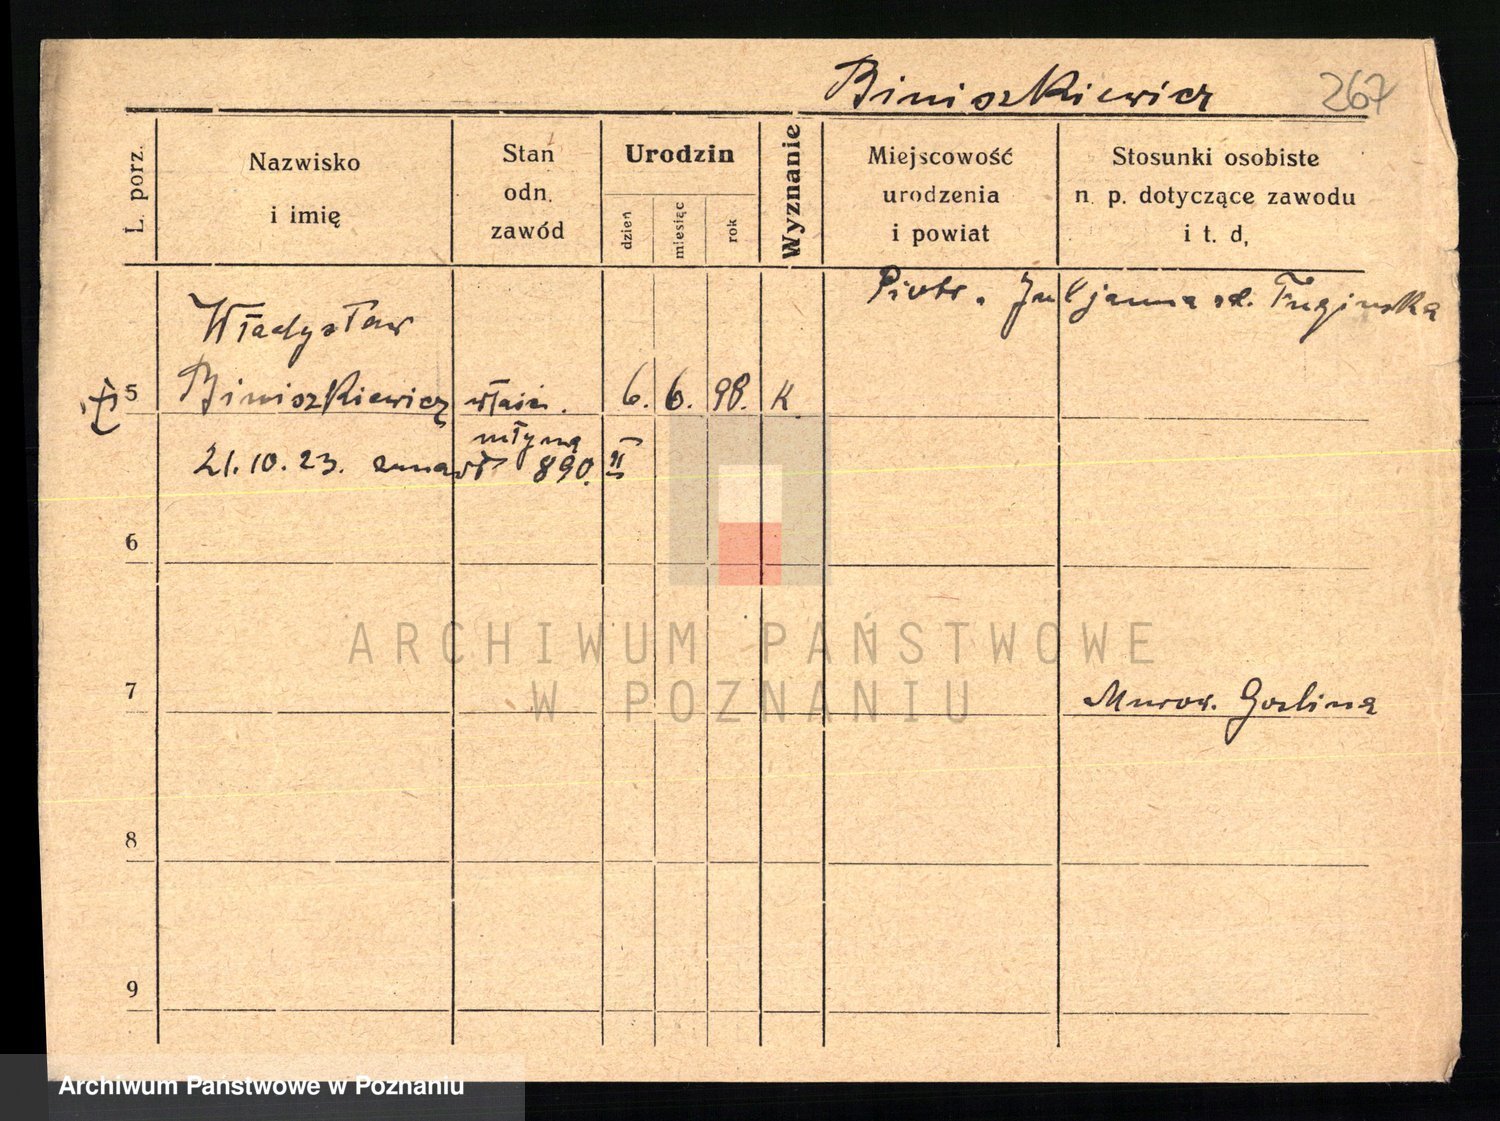 Biniszkiewicz 267
L. porz.
Nazwisko
i imię
Stan
odn.
zawód
Urodzin
dzień
miesiąc
rok
Wyznanie
Miejscowość
urodzenia
i powiat
Stosunki osobiste
n. p. dotyczące zawodu
i t. d,
Piotr. Juljanna od.
Władysław
5 Biniszkiewicz właśc. 6. 6. 98. K.
młyna
21.10.23. zmarł 890. II
6
ARCHIWUM PAŃSTWOWE
W POZNANIU
7 Murow. Goślina
8
9
Archiwum Państwowe w Poznaniu